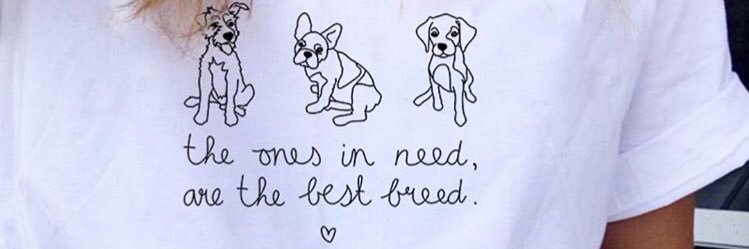 the ones in need,
are the best breed.